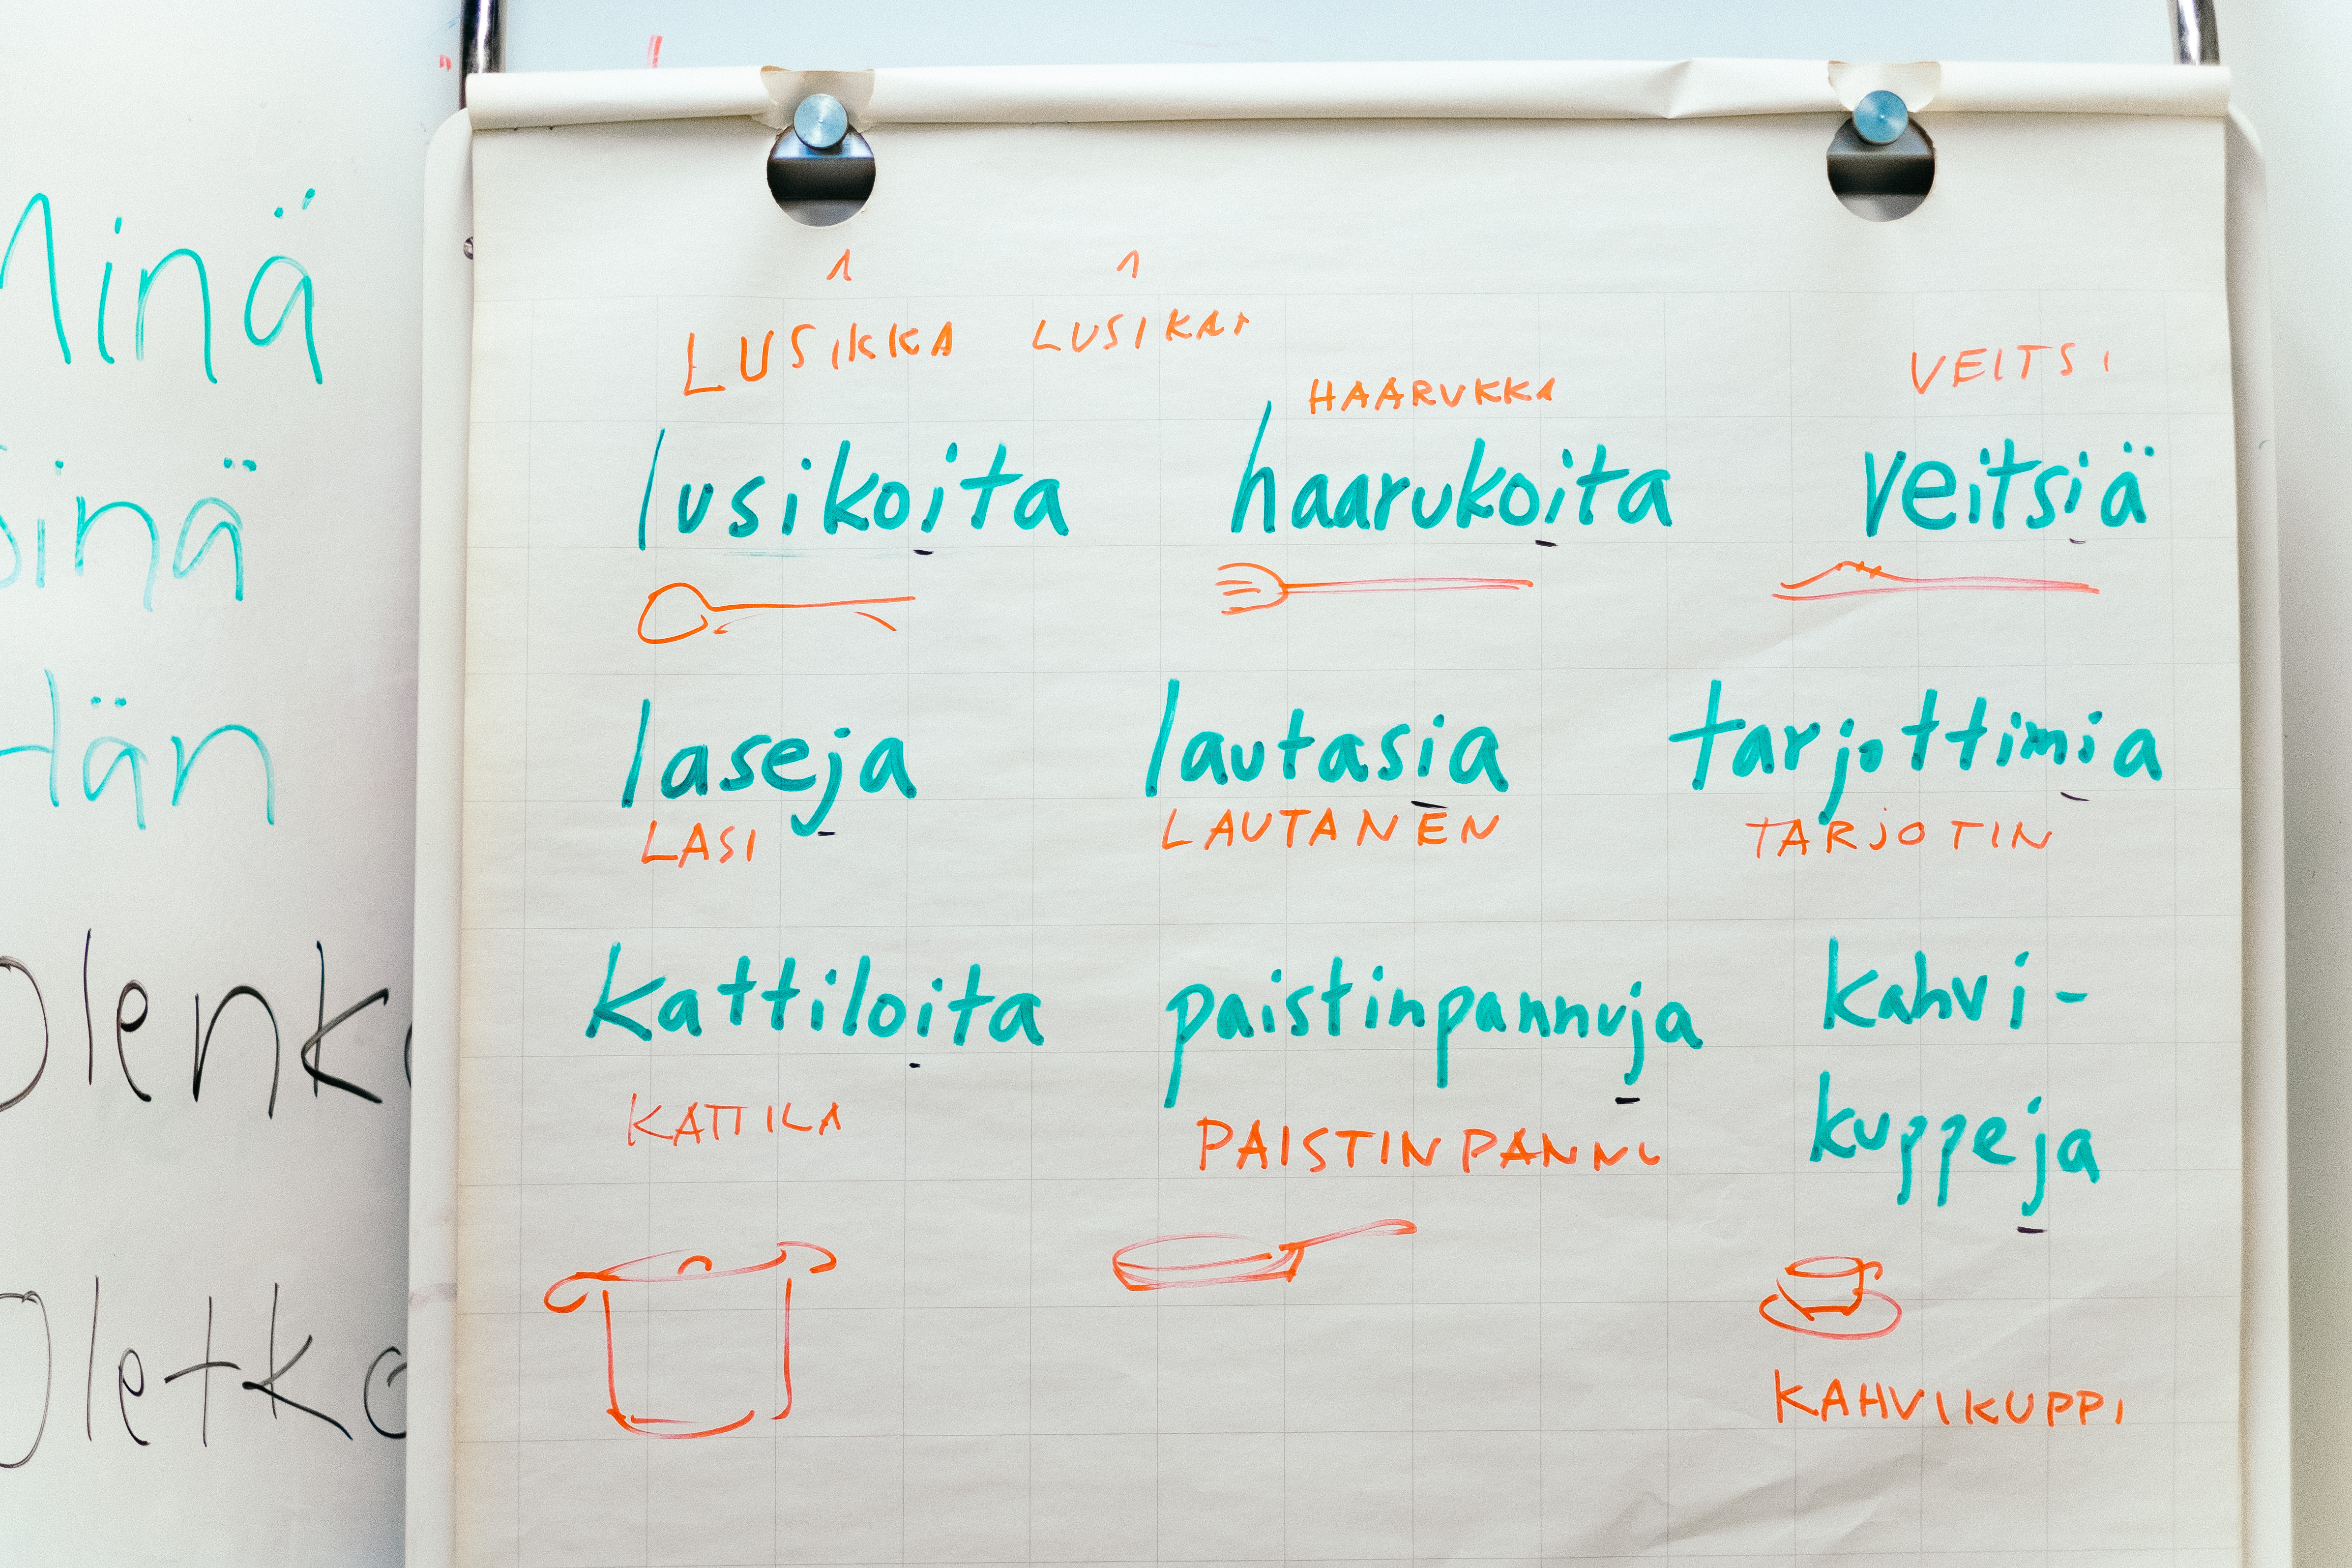 Minä
Sinä
Hän
Olenko
Oletko
1 1
LUSIKKA LUSIKAT
HAARUKKA
VEITSI
lusikoita haarukoita veitsiä
laseja lautasia tarjottimia
LASI LAUTANEN TARJOTIN
kattiloita paistinpannuja kahvi-
kuppeja
KATTILA PAISTINPANNU
KAHVIKUPPI